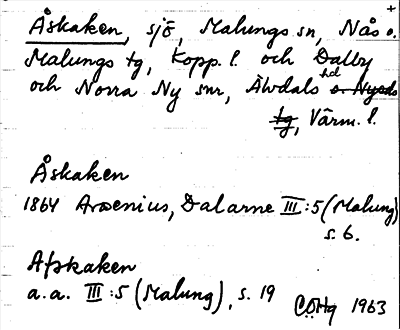 Åskaken, sjö, Malungs sn, Nås o.
Malungs tg, Kopp. l. och Dalby
och Norra Ny snr, Älvdals hd o. Nyeds
tg, Värm. l.
Åskaken
1864 Arosenius, Dalarne III:5 (Malung)
s. 6.
Afskaken
a.a. III:5 (Malung), s. 19
1963